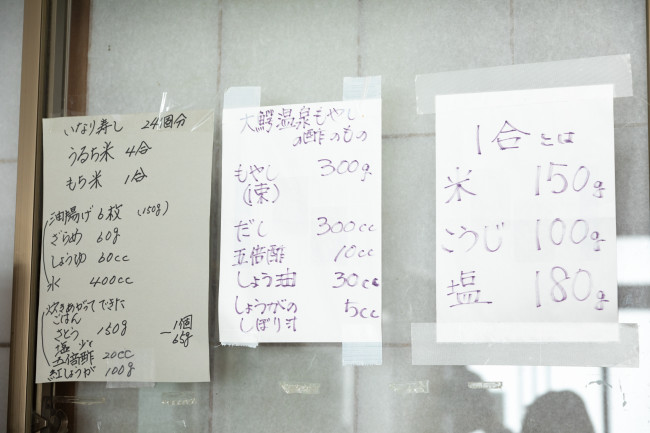 いなり寿し 24個分
うるち米 4合
もち米 1合
油揚げ 6枚 (150g)
ざらめ 60g
しょうゆ 60cc
水 400cc
炊きあがってできた
ごはん
さとう 150g
塩 少々
五倍酢 20cc
紅しょうが 100g
1個
65g
大鰐温泉もやし
の酢のもの
もやし 300g
(1束)
だし 300cc
五倍酢 10cc
しょう油 30cc
しょうがの 5cc
しぼり汁
1合とは
米 150g
こうじ 100g
塩 180g